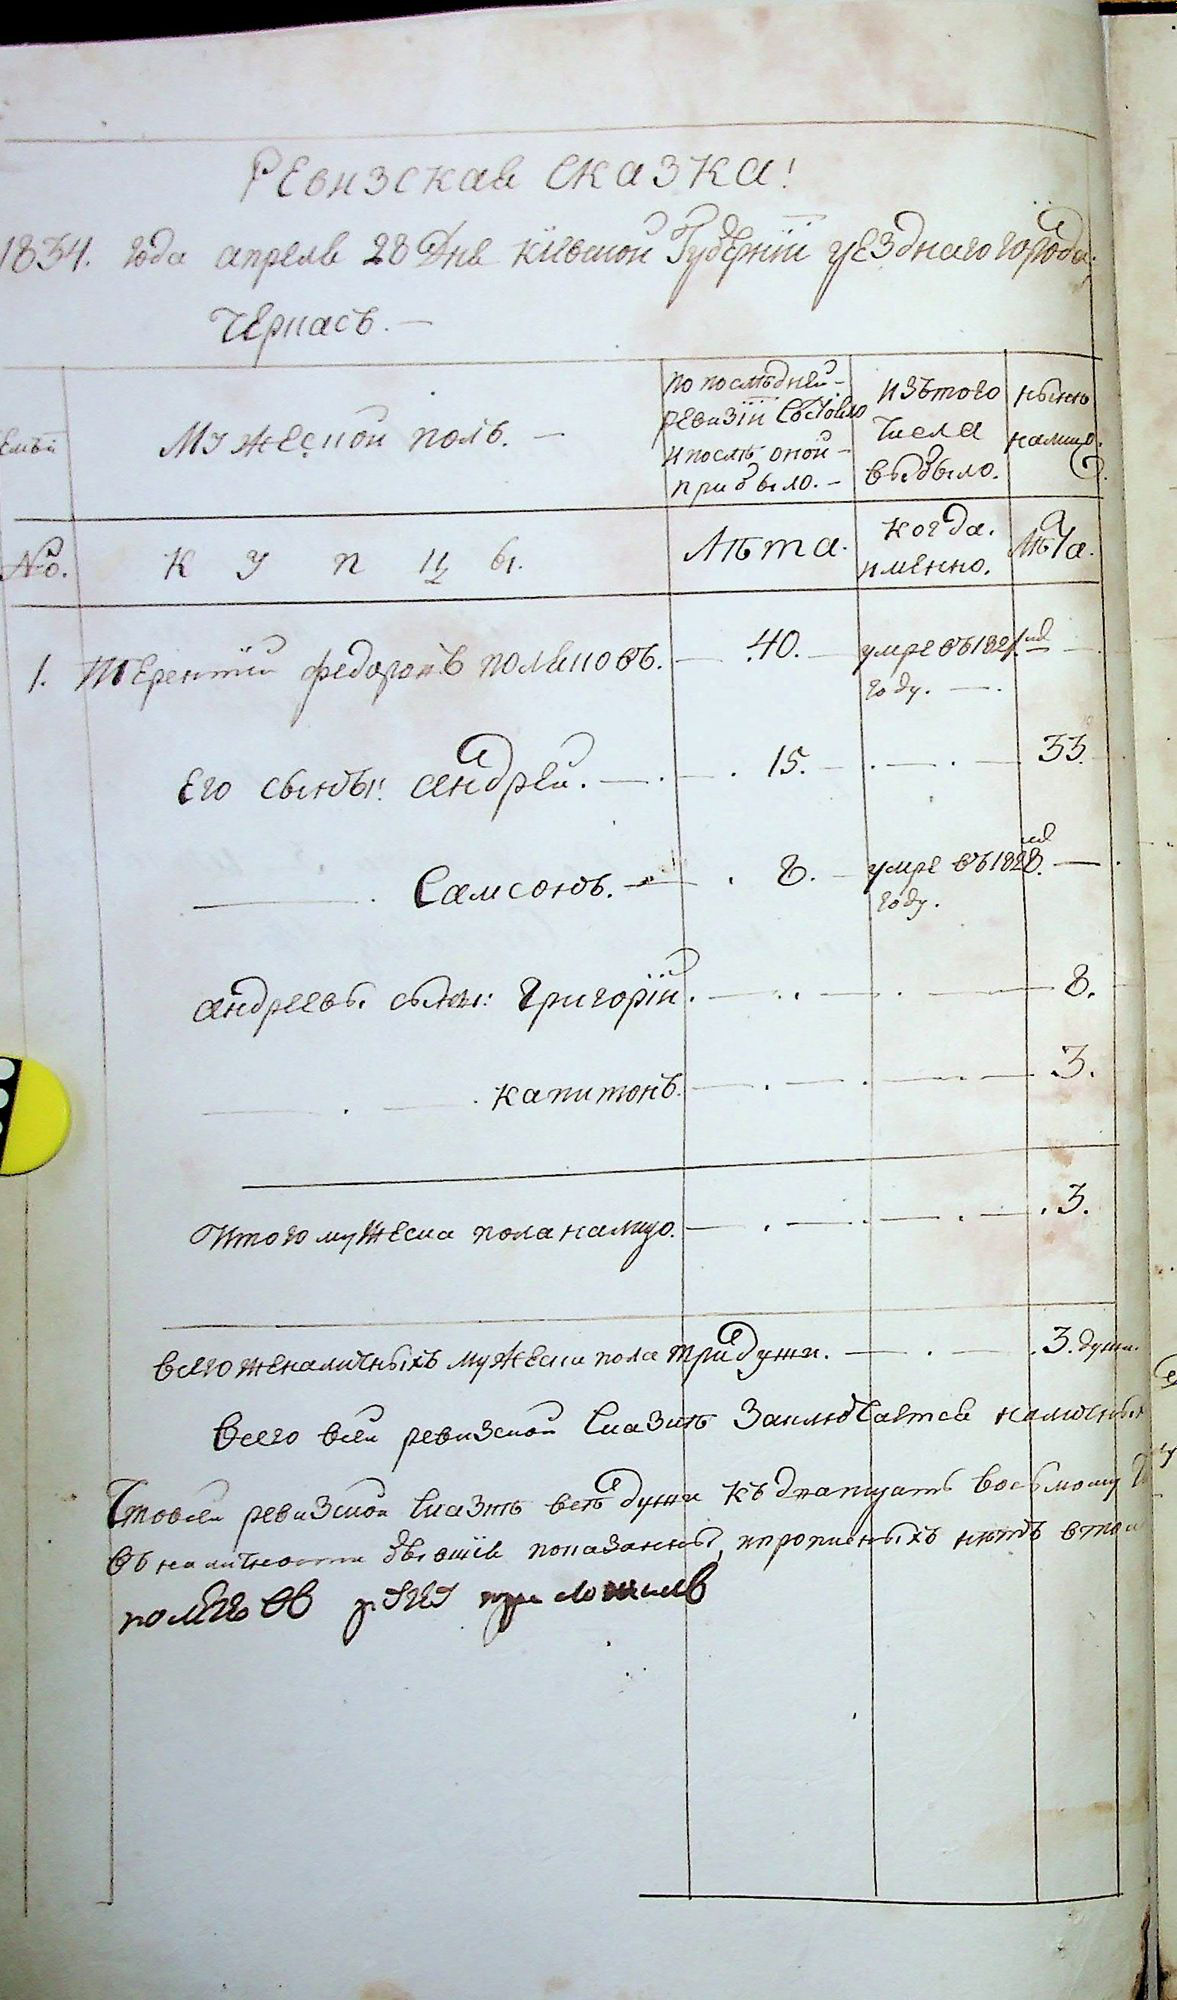 Ревизская сказка!
1834. года апреля 28 Дня кіевской Губерніи уезднаго города
Черкасъ. —
Мужеской полъ. —
по последней —
ревизіи состояло
и после оной —
прибыло. —
изътого
числа
выбыло.
ныне
налицо.
No.
К у п ц ы.
Лета.
когда.
именно.
Лета.
1. Терентіи федоровъ поляковъ. — 40. — умре въ 1821м —
году. —
Его сыны: андреи. — 15. — 33.
Самсонъ. — 8. — умре въ 1828м. —
году.
андреевы сыны: Григоріи. — 8.
капитонъ. — 3.
Итого мужеска пола налицо. — 3.
всего же наличныхъ мужеска пола три души. — 3. души.
Всего всеи ревизской сказке заключается наличных
Что всеи ревизской сказке все души къ дватцать восьмому
въ наличности бывшіе показаны, и прописныхъ нетъ втом
поляковъ руку приложилъ